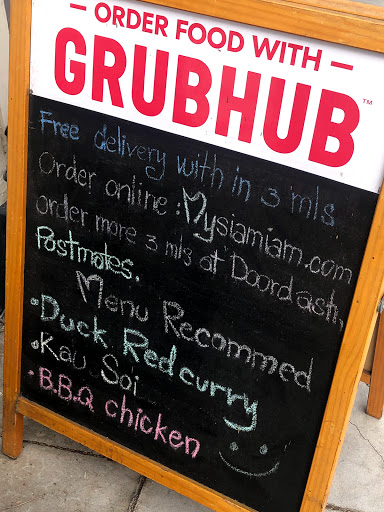 — ORDER FOOD WITH —
GRUBHUB™
Free delivery with in 3 mls
Order online : Mysiamiam.com
order more 3 mls at Doordash,
Postmates.
Menu Recommed
• Duck Red curry
• Kau Soi
• B.B.Q chicken